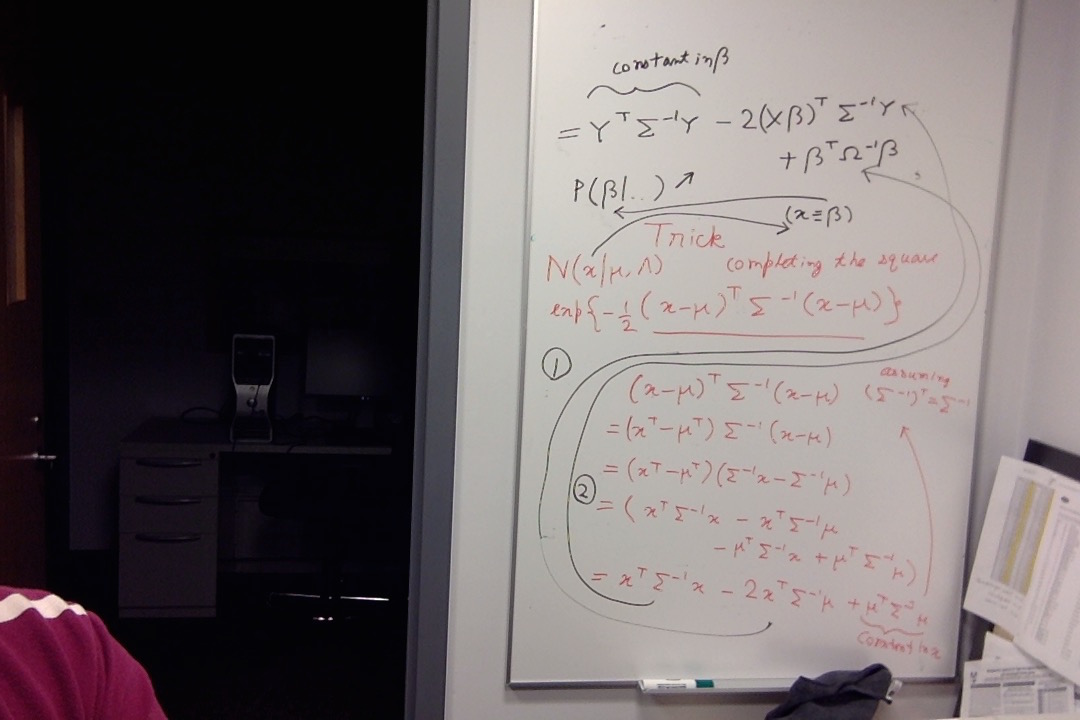 constant in β
= Y^T Σ^-1 Y - 2(Xβ)^T Σ^-1 Y
+ β^T Ω^-1 β
P(β|...) ↗
(x≡β)
Trick
N(x|μ,Λ) completing the square
exp{-1/2 (x-μ)^T Σ^-1 (x-μ)}
①
assuming
(x-μ)^T Σ^-1 (x-μ) (Σ^-1)^T = Σ^-1
= (x^T - μ^T) Σ^-1 (x-μ)
= (x^T - μ^T)(Σ^-1 x - Σ^-1 μ)
②
= ( x^T Σ^-1 x - x^T Σ^-1 μ
- μ^T Σ^-1 x + μ^T Σ^-1 μ)
= x^T Σ^-1 x - 2x^T Σ^-1 μ + μ^T Σ^-1 μ
constant in x